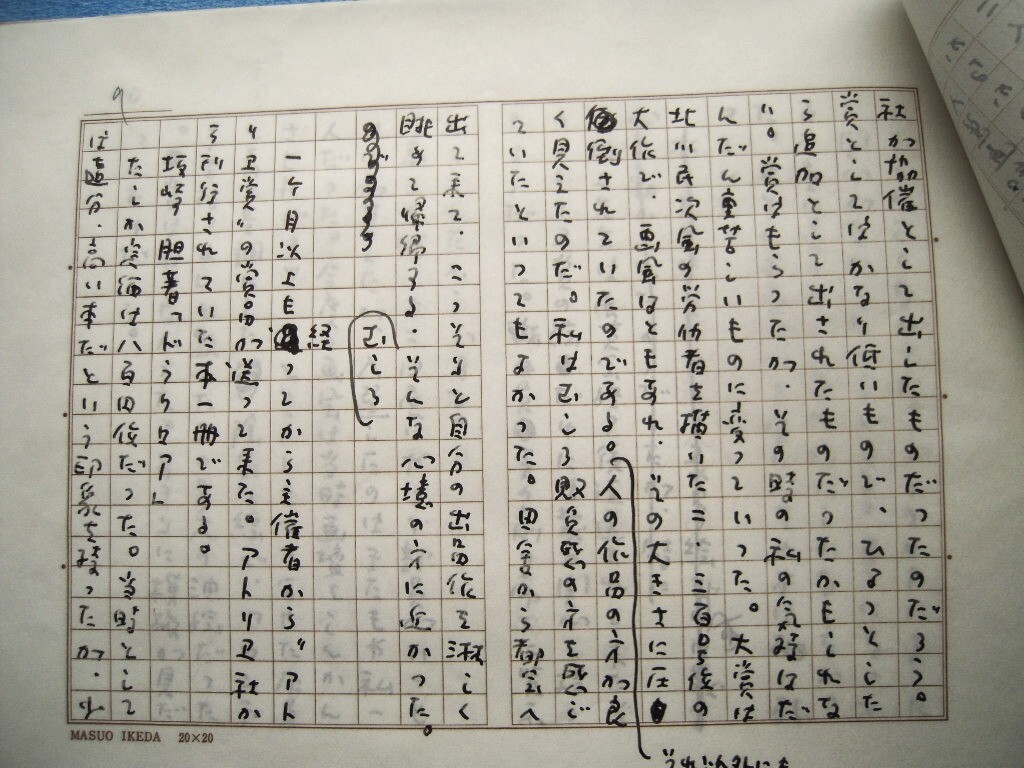 9
社が協催として出したものだったのだろう。
賞としてはかなり低いもので、ひょっとした
ら追加として出されたものだったかもしれな
い。賞はもらったが、その時の私の気持はだ
んだん重苦しいものに変っていった。大賞は
北川民次風の労働者を描いた二、三百号の
大作で、画風はともあれ、その大きさに圧
倒されていたのである。人の作品の方が良
く見えたのだ。私はむしろ敗負感の方を感じ
ていたといってもよかった。会から都会へ
それ以外にも
出て来て、こっそりと自分の出品作を探しく
眺めて帰るよ、そんな心境の方に近かった。
むしろ
一ヶ月以上も経ってから主催者からアト
リエ賞の賞品が送って来た。アトリエ社か
ら刊行されていた本一冊である。
坂崎坦著「ドラクロア」
たしか定価は八百円位だった。当時として
は随分、高い本だという印象を持ったが、少
MASUO IKEDA 20×20